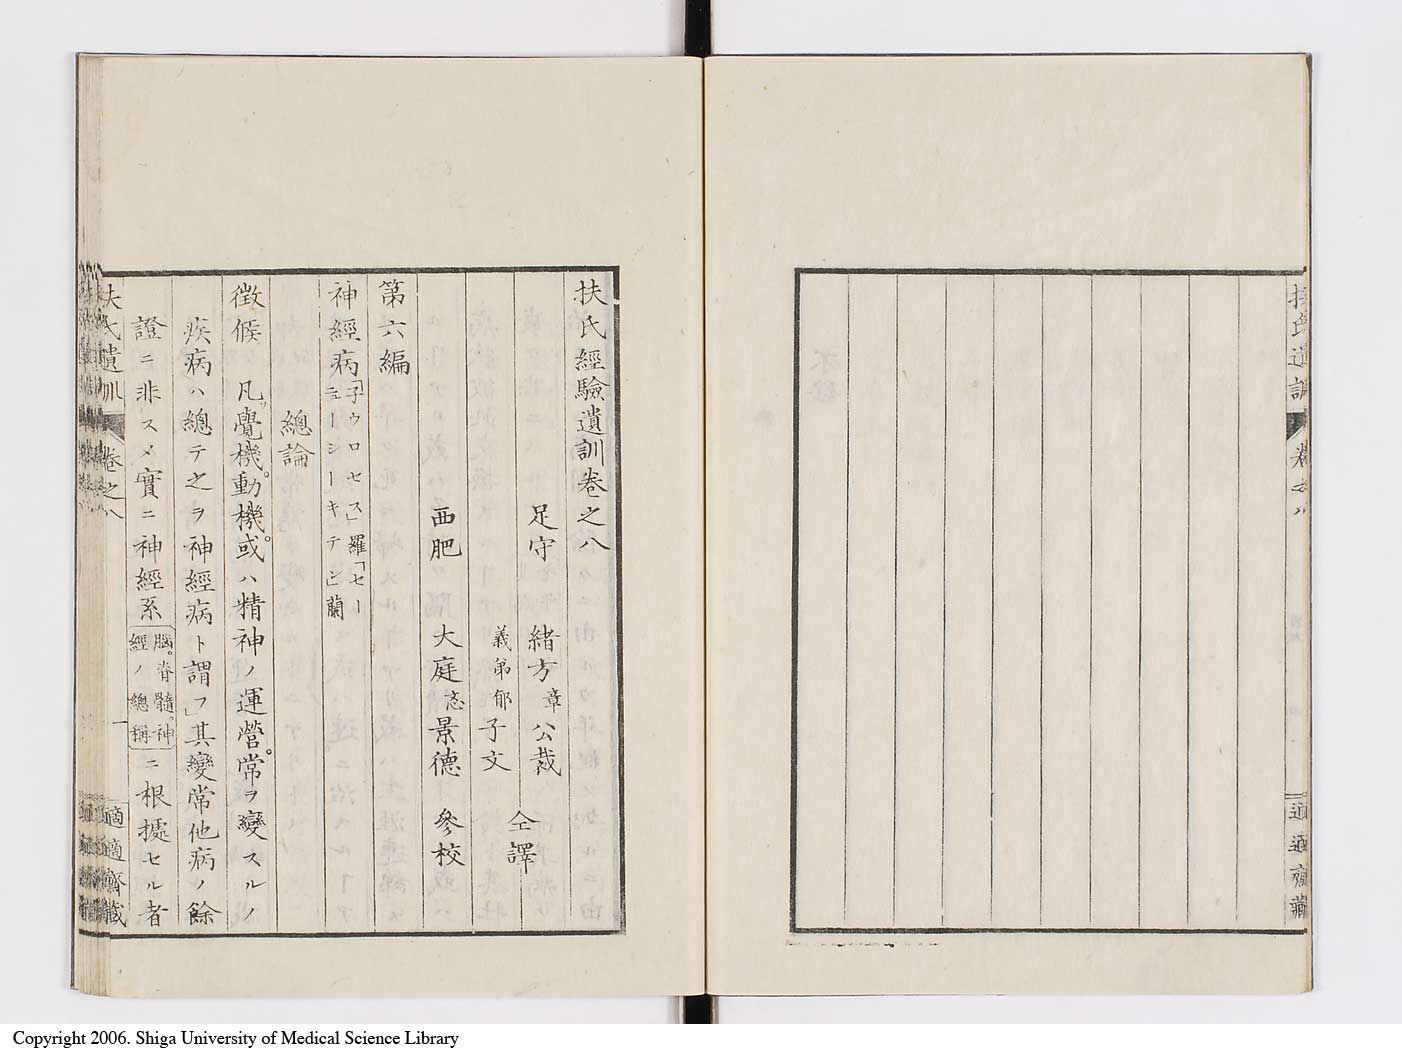 扶氏遺訓 卷之八 適適齋藏
扶氏經驗遺訓卷之八
足守 緒方章公裁
義弟郁子文 仝譯
西肥 大庭忞景德 參校
第六編
神經病「子ウロセス」羅「セー
ニューシーキテン」蘭
總論
徴候 凡覺機。動機。或ハ精神ノ運營。常ヲ變スルノ
疾病ハ總テ之ヲ神經病ト謂フ」其變常他病ノ餘
證ニ非スメ實ニ神經系腦。脊髓。神經ノ總稱ニ根據セル者
扶氏遺訓 卷之八 一 適適齋藏
Copyright 2006. Shiga University of Medical Science Library